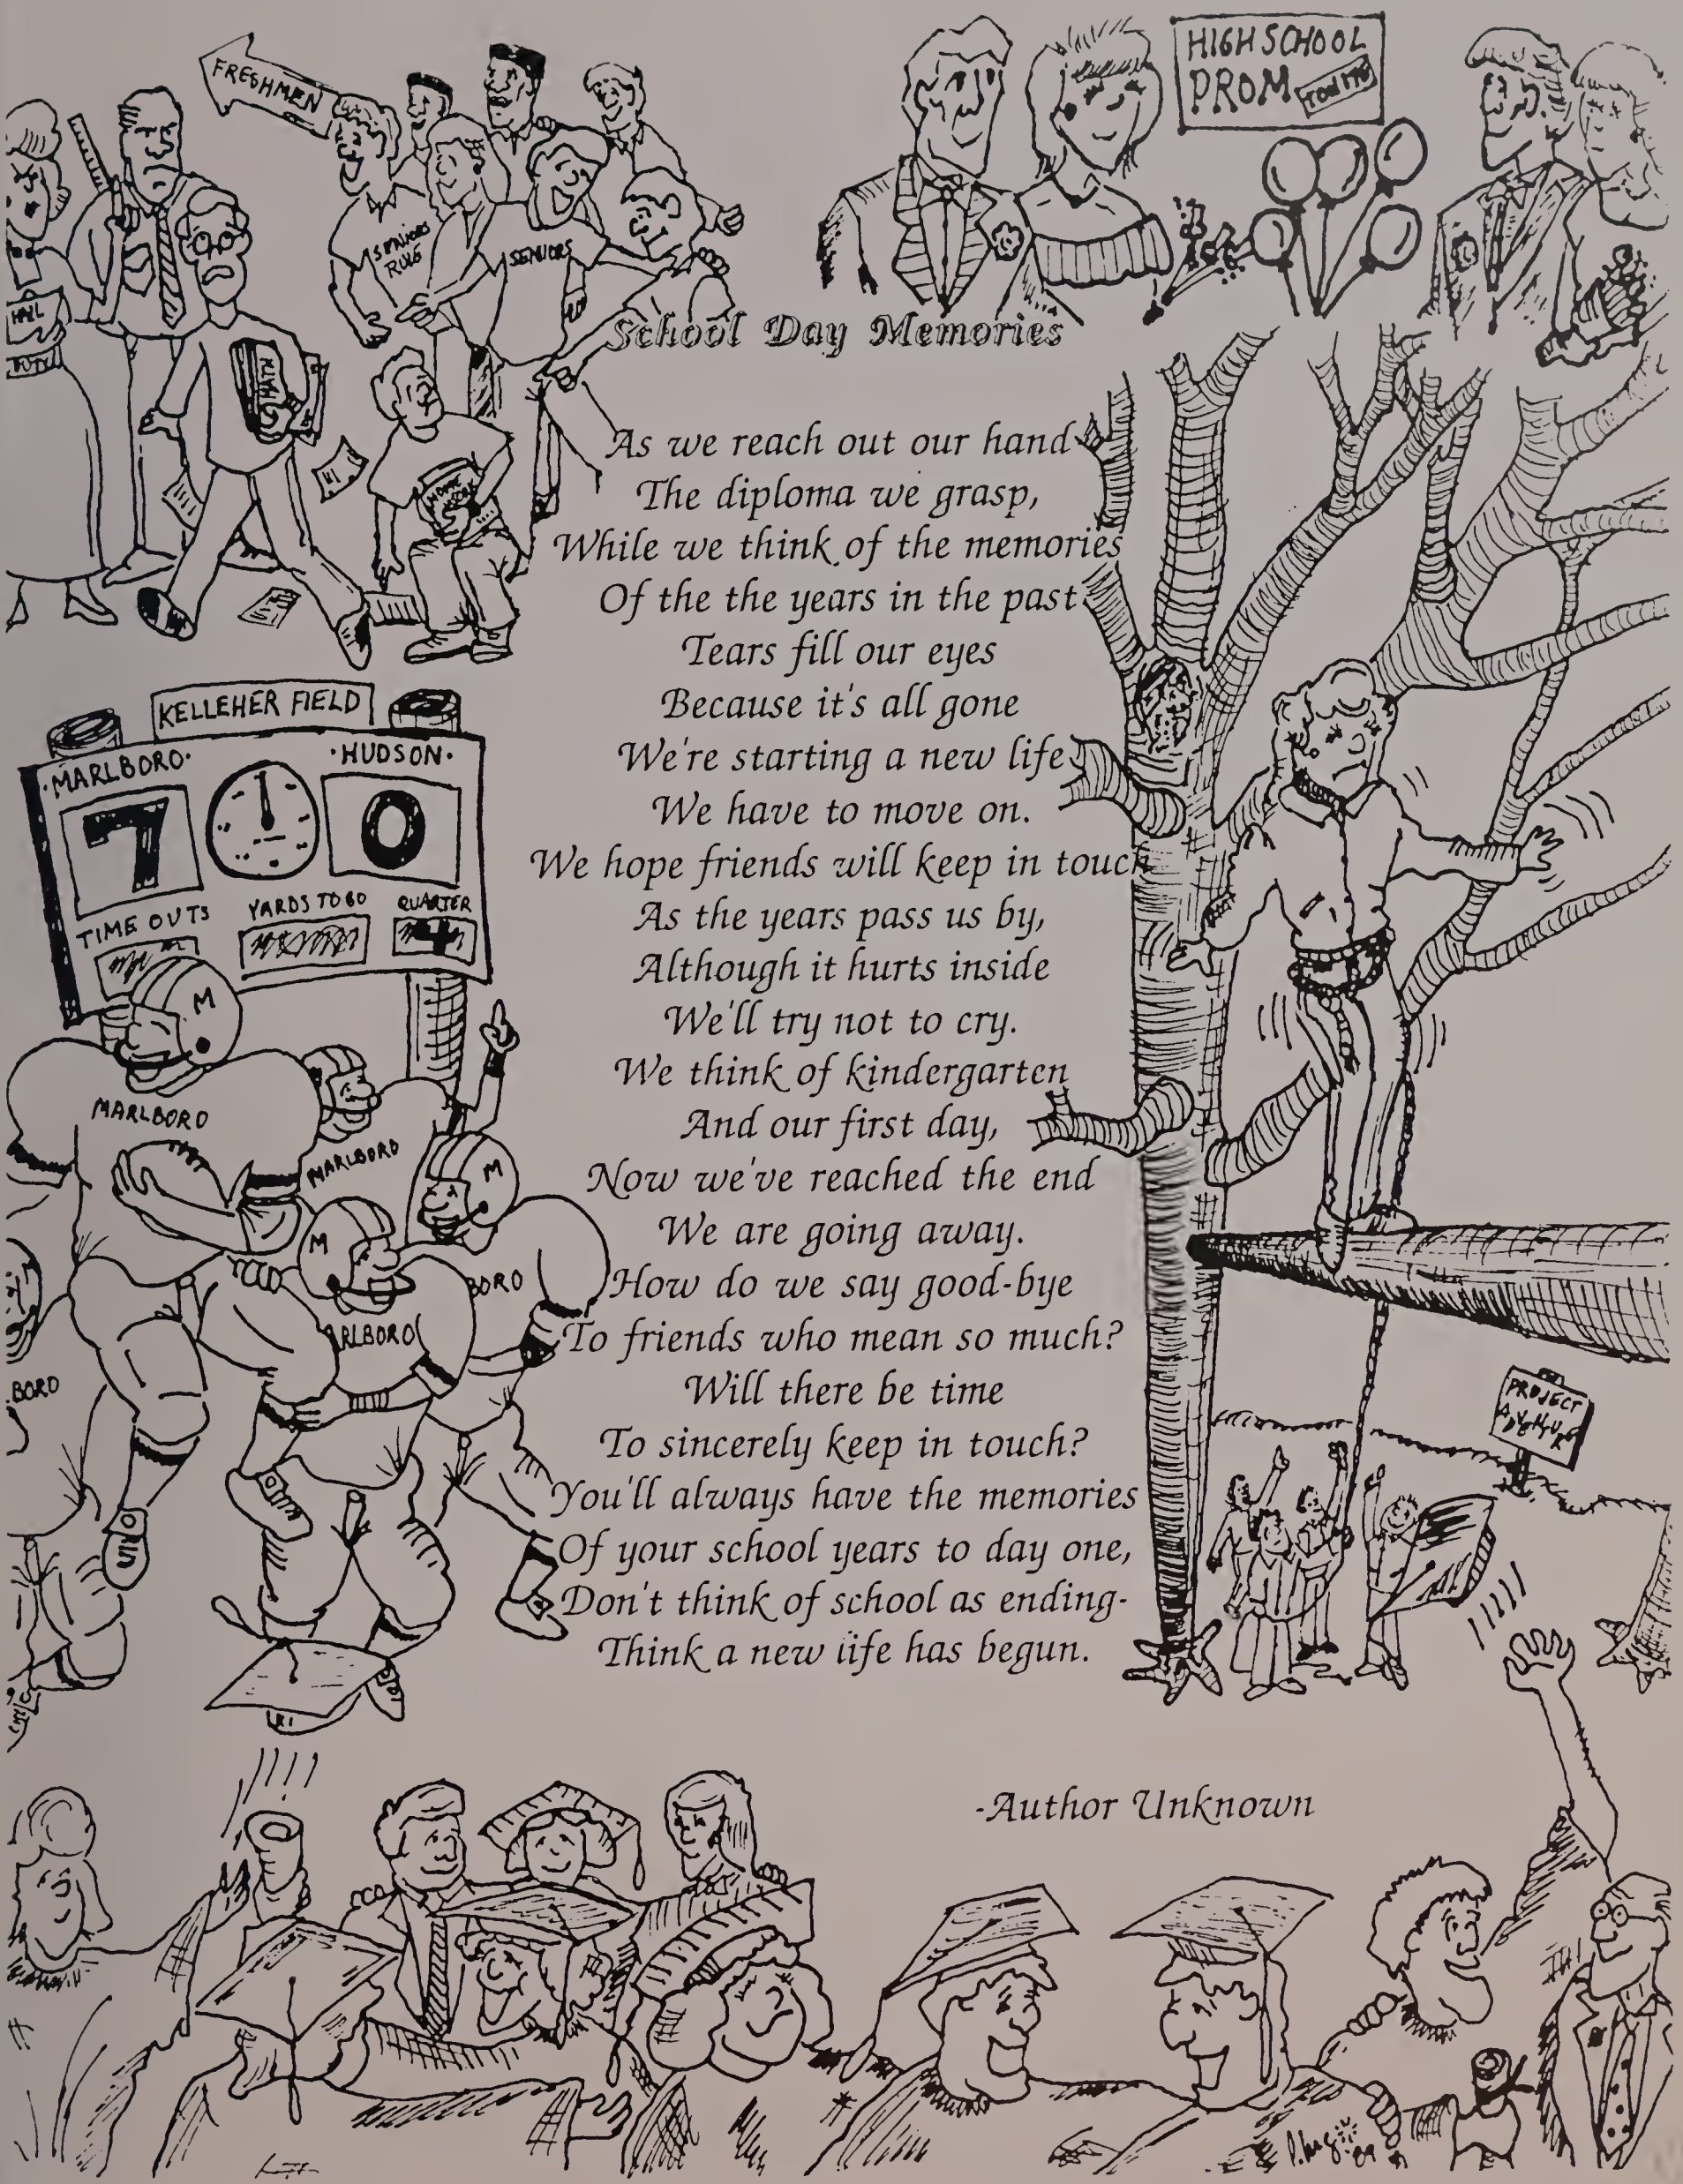 FRESHMEN
HIGH SCHOOL
PROM TONITE
SENIORS
RULE
SENIORS
HALL
DUTY
MATH
HOME
WORK
School Day Memories
As we reach out our hand
The diploma we grasp,
While we think of the memories
Of the the years in the past
Tears fill our eyes
Because it's all gone
We're starting a new life
We have to move on.
We hope friends will keep in touch
As the years pass us by,
Although it hurts inside
We'll try not to cry.
We think of kindergarten
And our first day,
Now we've reached the end
We are going away.
How do we say good-bye
To friends who mean so much?
Will there be time
To sincerely keep in touch?
You'll always have the memories
Of your school years to day one,
Don't think of school as ending-
Think a new life has begun.
-Author Unknown
KELLEHER FIELD
·MARLBORO· ·HUDSON·
7 0
TIME OUTS YARDS TO GO QUARTER
4
M
MARLBORO
MARLBORO
M
M
BORO
ARLBORO
BORO
PROJECT
ADVENTURE
'89